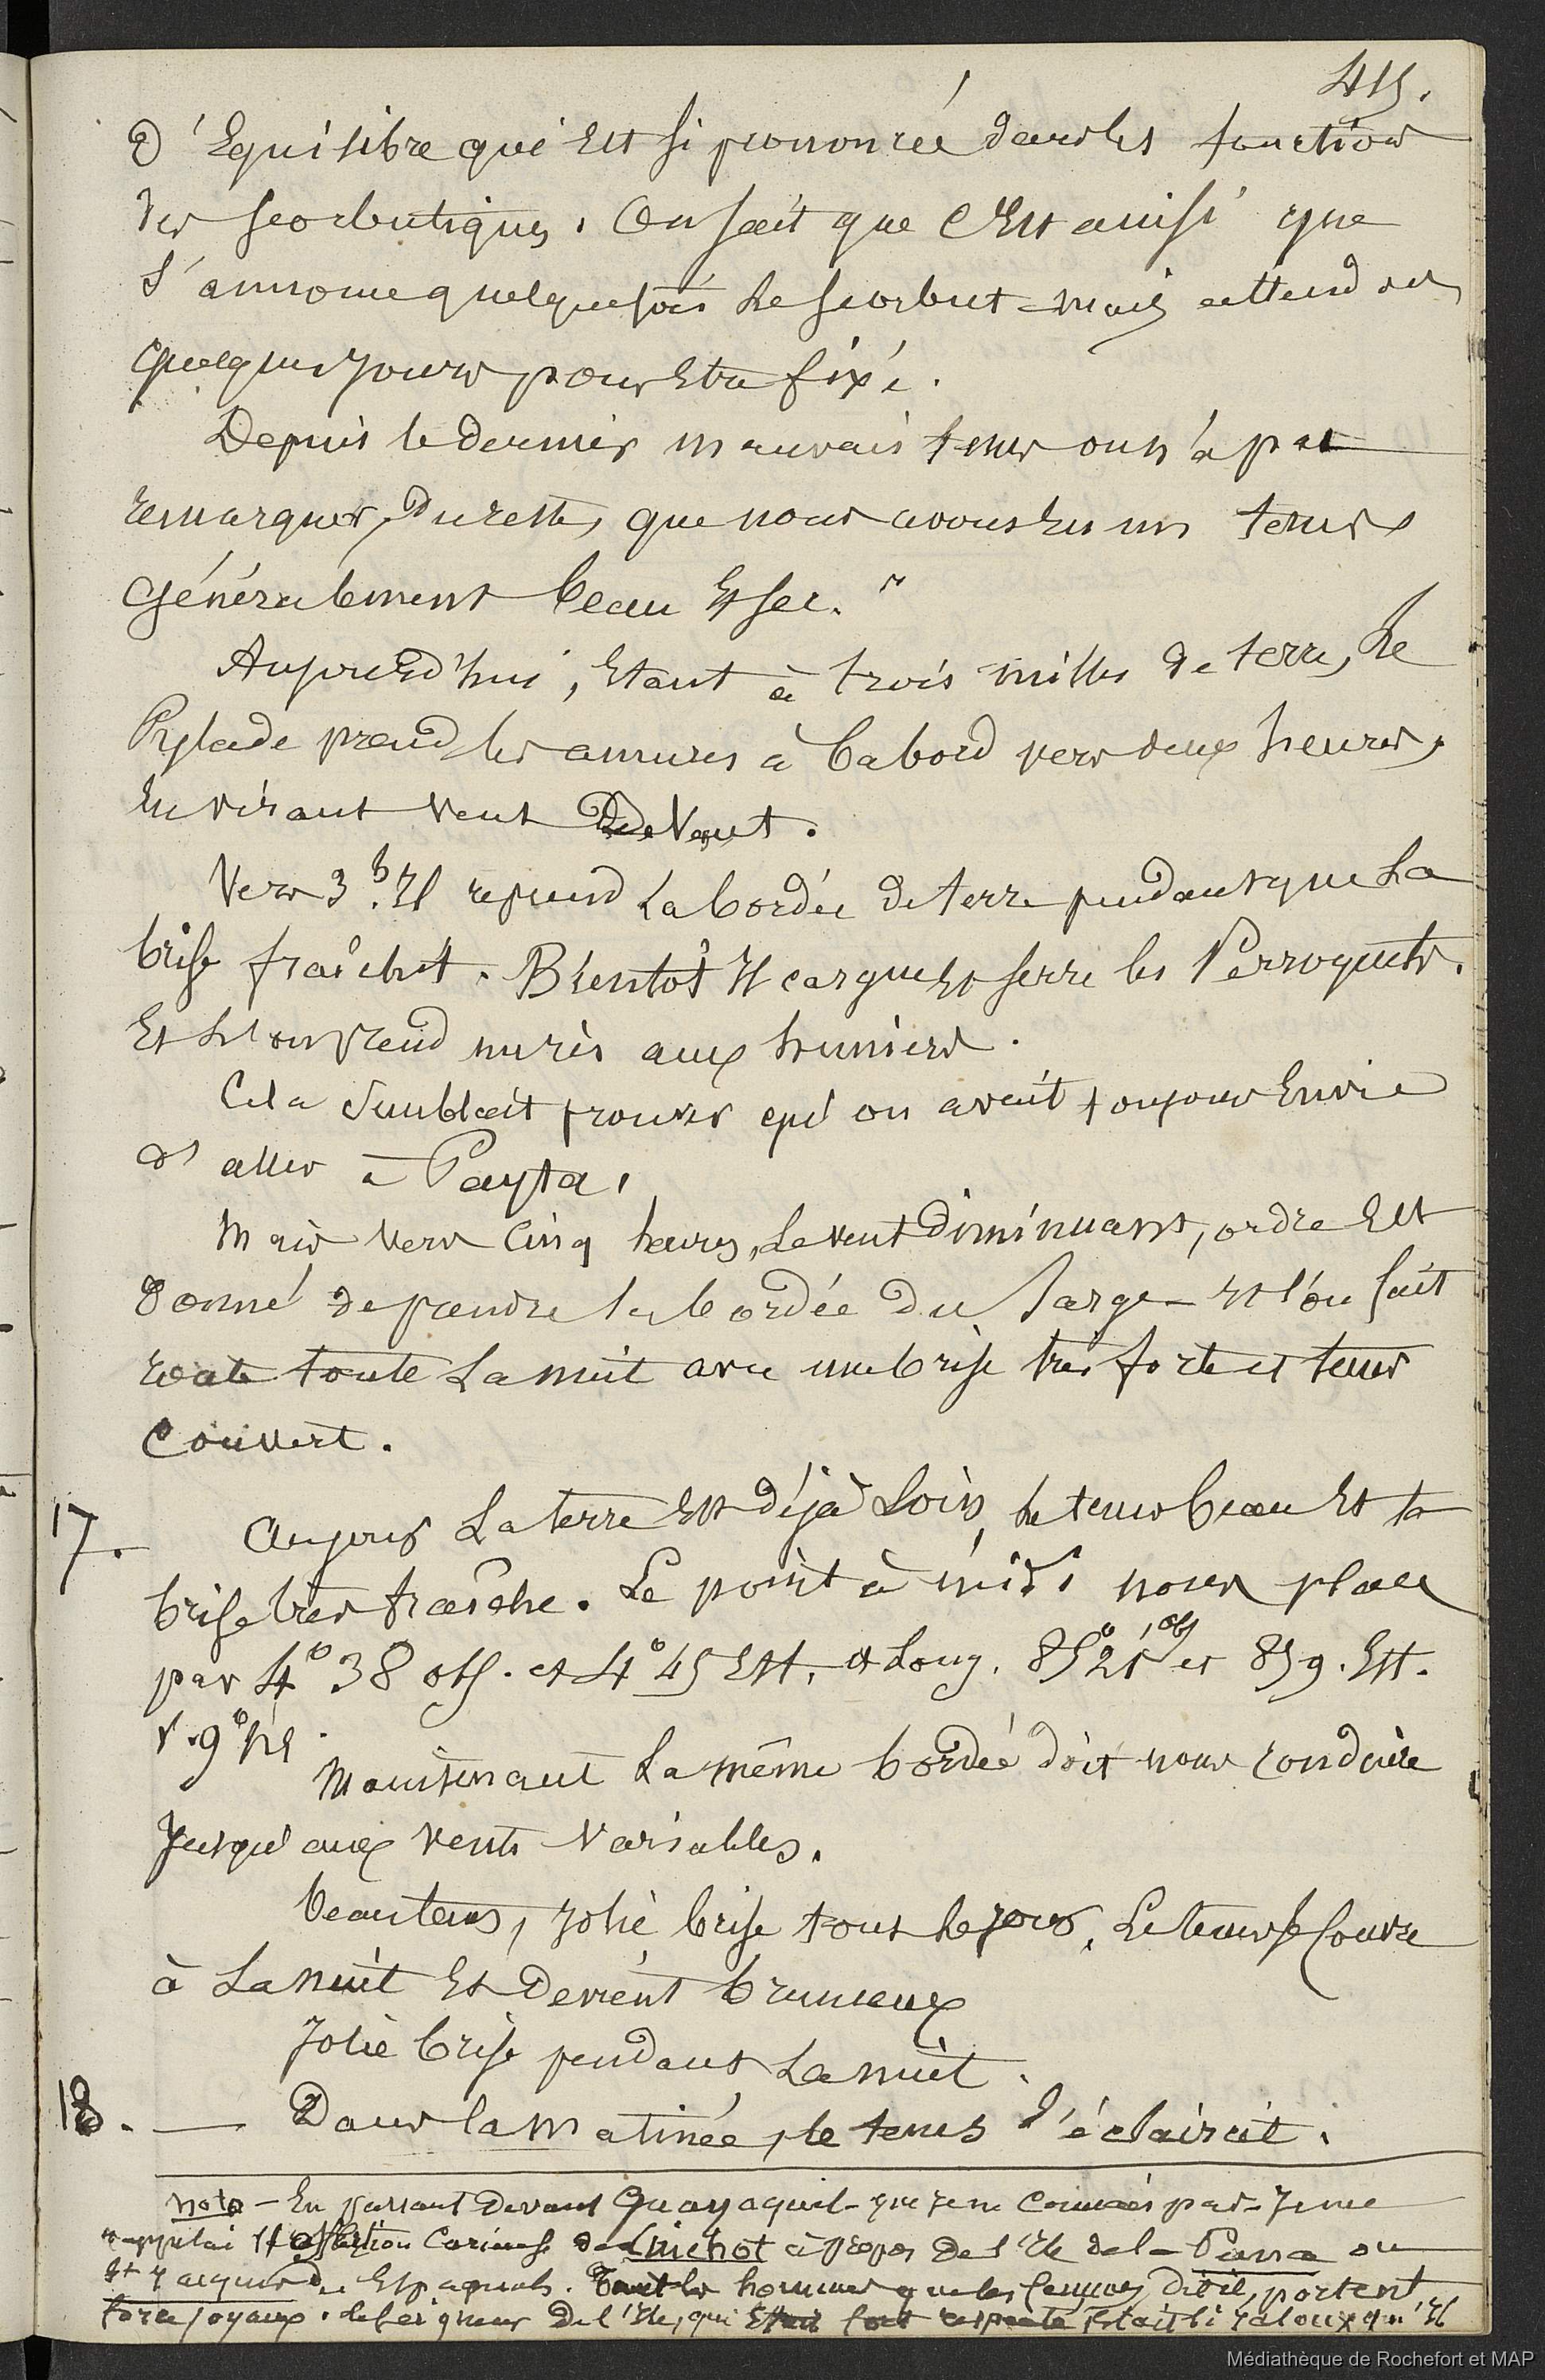 415.
d'Equilibre qui Est si prononcée dans les fonctions
des scorbutiques. On sait que c'Est ainsi que
s'annonce quelquefois Le scorbut - mais attendons
quelques jours pour Etre fixé.
Depuis le dernier mauvais tems on n'a pas
remarquer, du reste, que nous avons Eu un tems
généralement beau Et sec."
Aujourd'hui, Etant à trois milles de terre, Le
Pylade prend les amures à babord vers deux heures,
En virant vent Devant.
Vers 3h. Il reprend La bordée de terre pendant que La
brise fraîchit. Bientôt Il cargue Et serre les Perroquets.
Et L'on prend un ris aux huniers.
Cela semblait prouver qu'on avait toujours Envie
d'aller à Payta.
Mais vers Cinq heures, Le vent Diminuant, ordre Est
Donné de prendre la bordée Du large - Et l'on fait
route toute La nuit avec une brise très forte et tems
Couvert.
17. Au jour La terre Est déjà Loin, Le tems beau Et la
brise très fraîche. Le point à midi nous place
par 4° 38 obs. et 4° 45 Est. et Long. 85° 21' obs et 85 9. Est.
V. 9°
Maintenant La même bordée doit nous conduire
Jusqu'aux vents variables.
beau tems, Jolie brise tout Le jour. Le tems se Couvre
à La nuit Et Devient brumeux
Jolie brise pendant La nuit.
18. — Dans la Matinée, le tems s'éclaircit.
nota - En passant Devant Guayaquil - que je ne Connais pas - Je me
rappelai curieuse de Guichot à propos De l'Ile de la Puna ou
St Jacques des Espagnols. Tant les hommes que les femmes, Dit il, portent
force joyaux. Le Seigneur De l'Ile, qui Etait fort respecté Etait si jaloux qu'Il
Médiathèque de Rochefort et MAP